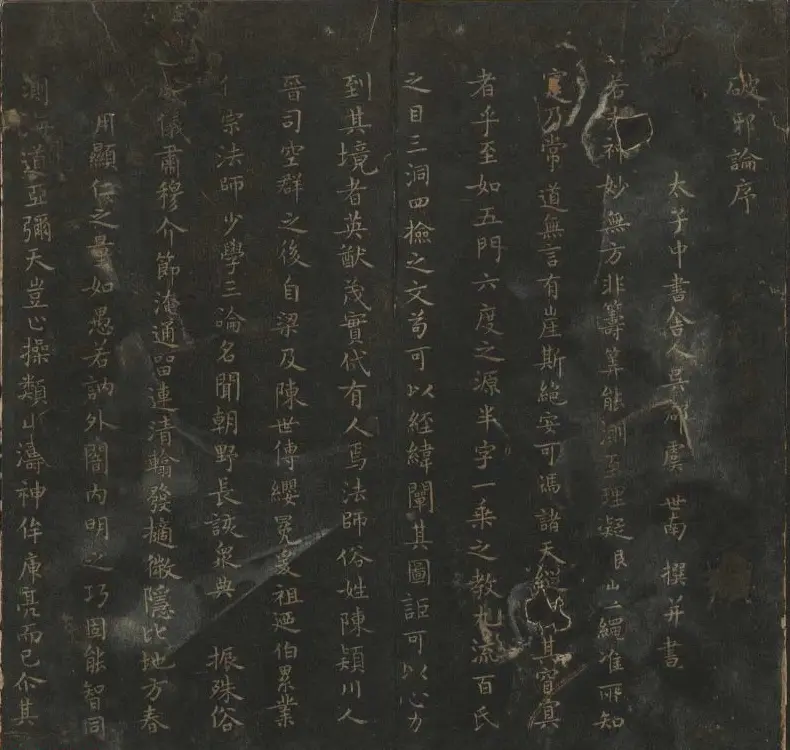 破邪論序
太子中書舍人吳郡虞世南撰并書
若夫神妙無方非籌筭能測至理凝繩准所知
寔乃常道無言有崖斯絕安可馮諸天其窅冥
者乎至如五門六度之源半字一乘之教九流百氏
之目三洞四檢之文苟可以經緯闡其圖詎可以心力
到其境者英猷茂實代有人焉法師俗姓陳穎川人
晉司空群之後自梁及陳世傳纓冕爰祖迺伯累業
宗法師少學三論名聞朝野長該衆典振殊俗
儀肅穆介節淹通留連清翰發擿微隱比地方春
用顯仁之量如愚若訥外闇內明之巧固能智同
測海道亞彌天豈止操類山濤神侔庾亮而已尒其